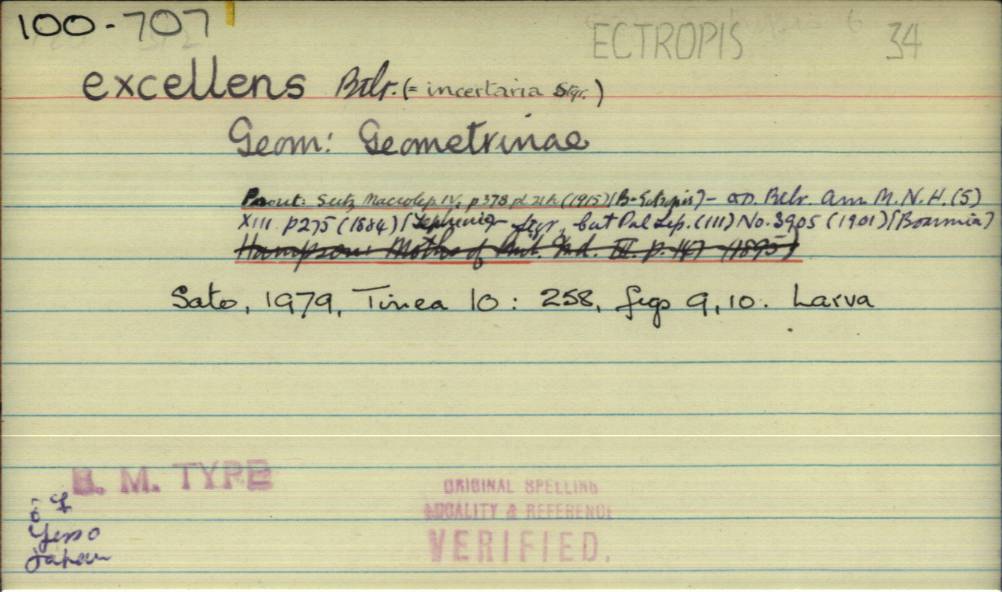 100-707
ECTROPIS 34
excellens Btlr. (= incertaria Stgr.)
Geom: Geometrinae
Prout: Seitz Macrolep IV, p 373, pl 21h (1915) (B-Ectropis) - Btlr. Ann M.N.H. (5)
XIII p275 (1884) (Tephrosia) - Stgr, but Pal Lep. (III) No. 3905 (1901) (Boarmia)
Hampson: Moths of Brit. Ind. III. p. 147 (1895)
Sato, 1979, Tinea 10: 258, figs 9, 10. Larva
B. M. TYPE
Yesso
Japan
ORIGINAL SPELLING
LOCALITY & REFERENCE
VERIFIED.